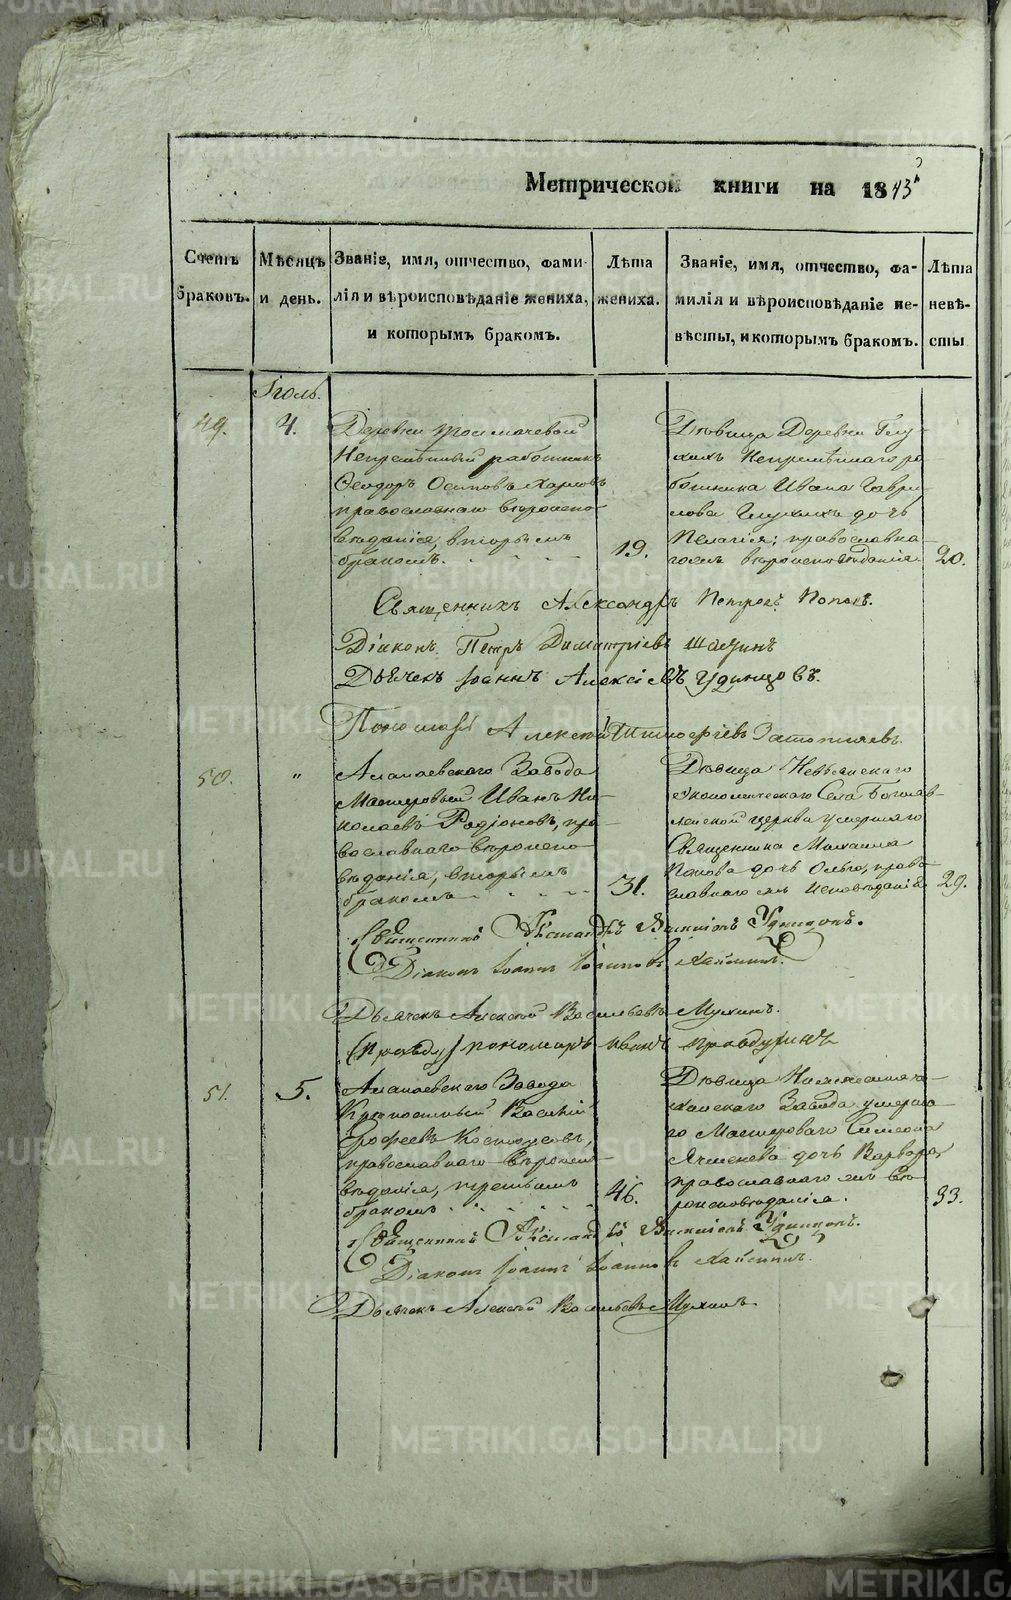 Метрической книги на 1843й
Счетъ браковъ.
Мѣсяцъ и день.
Званіе, имя, отчество, фами-
лія и вѣроисповѣданіе жениха,
и которымъ бракомъ.
Лѣта
жениха.
Званіе, имя, отчество, фа-
милія и вѣроисповѣданіе не-
вѣсты, и которымъ бракомъ.
Лѣта
невѣ-
сты
Іюль.
49.
4.
Деревни
Непремѣнный работникъ
Ѳеодоръ Осиповъ Харловъ
православнаго вѣроиспо-
вѣданія, вторымъ
бракомъ.
19.
Дѣвица Деревни Глу-
хихъ Непремѣннаго ра-
ботника Ивана Гаври-
лова Глухихъ дочь
Пелагія; православна-
гожъ вѣроисповѣданія
20.
Священникъ Александръ Петровъ Поповъ.
Діаконъ Петръ Димитріевъ
Дьячекъ Іоаннъ Алексіевъ Удинцовъ.
Пономарь Алексій
50.
"
Алапаевскаго Завода
Мастеровый Иванъ Ни-
колаевъ Родіоновъ, пра-
вославнаго вѣроиспо-
вѣданія, вторымъ
бракомъ
31.
Дѣвица Невьянскаго
экономическаго Села Богояв-
ленской церкви умершаго
Священника Михаила
Попова дочь Ольга, право-
славнагожъ исповѣданія
29.
Священникъ Александръ Удинцовъ.
Діаконъ Іоаннъ Іоанновъ
Дьячекъ Алексій Васильевъ Мухинъ.
пономарь Иванъ
51.
5.
Алапаевскаго Завода
Василій
Ерофеевъ
православнаго вѣроиспо-
вѣданія, третьимъ
бракомъ
46.
Дѣвица
Завода умерша-
го Мастероваго Симеона
Ячменева дочь Варвара,
православнагожъ вѣ-
роисповѣданія.
33.
Священникъ Александръ Удинцовъ.
Діаконъ Іоаннъ Іоанновъ
Дьячекъ Алексій Васильевъ Мухинъ.
METRIKI.GASO-URAL.RU